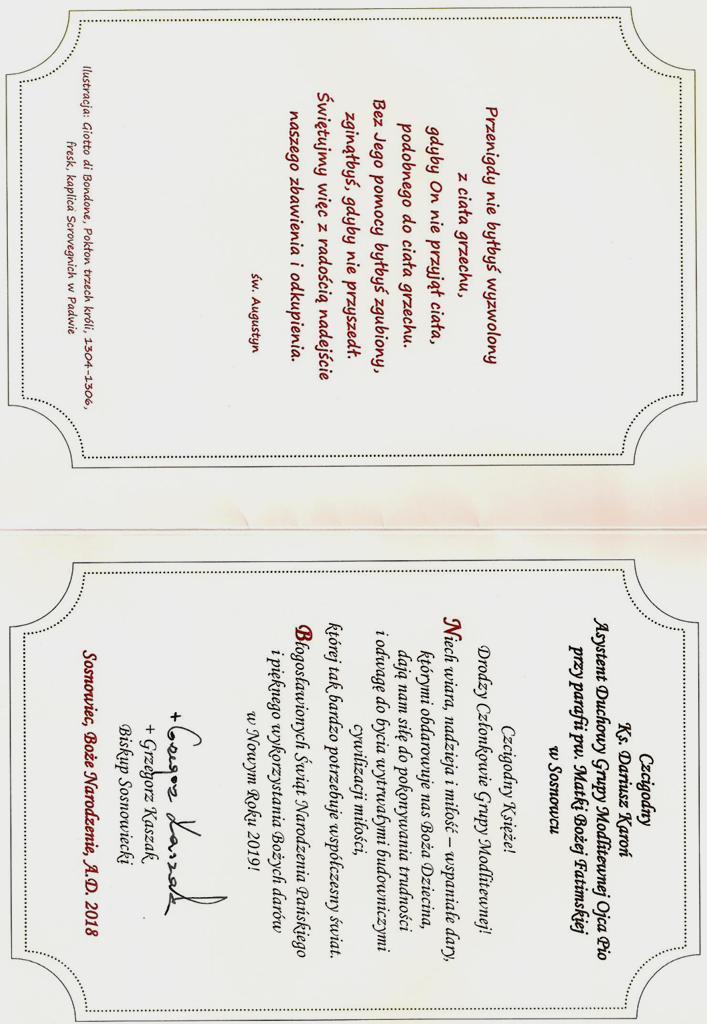 Przenigdy nie byłbyś wyzwolony
z ciała grzechu,
gdyby On nie przyjął ciała,
podobnego do ciała grzechu.
Bez Jego pomocy byłbyś zgubiony,
zginąłbyś, gdyby nie przyszedł.
Świętujmy więc z radością nadejście
naszego zbawienia i odkupienia.
św. Augustyn
Ilustracja: Giotto di Bondone, Pokłon trzech króli, 1304-1306,
fresk, kaplica Scrovegnich w Padwie
Czcigodny
Ks. Dariusz Karoń
Asystent Duchowy Grupy Modlitewnej Ojca Pio
przy parafii pw. Matki Bożej Fatimskiej
w Sosnowcu
Czcigodny Księże!
Drodzy Członkowie Grupy Modlitewnej!
Niech wiara, nadzieja i miłość – wspaniałe dary,
którymi obdarowuje nas Boża Dziecina,
dają nam siłę do pokonywania trudności
i odwagę do bycia wytrwałymi budowniczymi
cywilizacji miłości,
której tak bardzo potrzebuje współczesny świat.
Błogosławionych Świąt Narodzenia Pańskiego
i pięknego wykorzystania Bożych darów
w Nowym Roku 2019!
+ Grzegorz Kaszak
+ Grzegorz Kaszak
Biskup Sosnowiecki
Sosnowiec, Boże Narodzenie, A.D. 2018